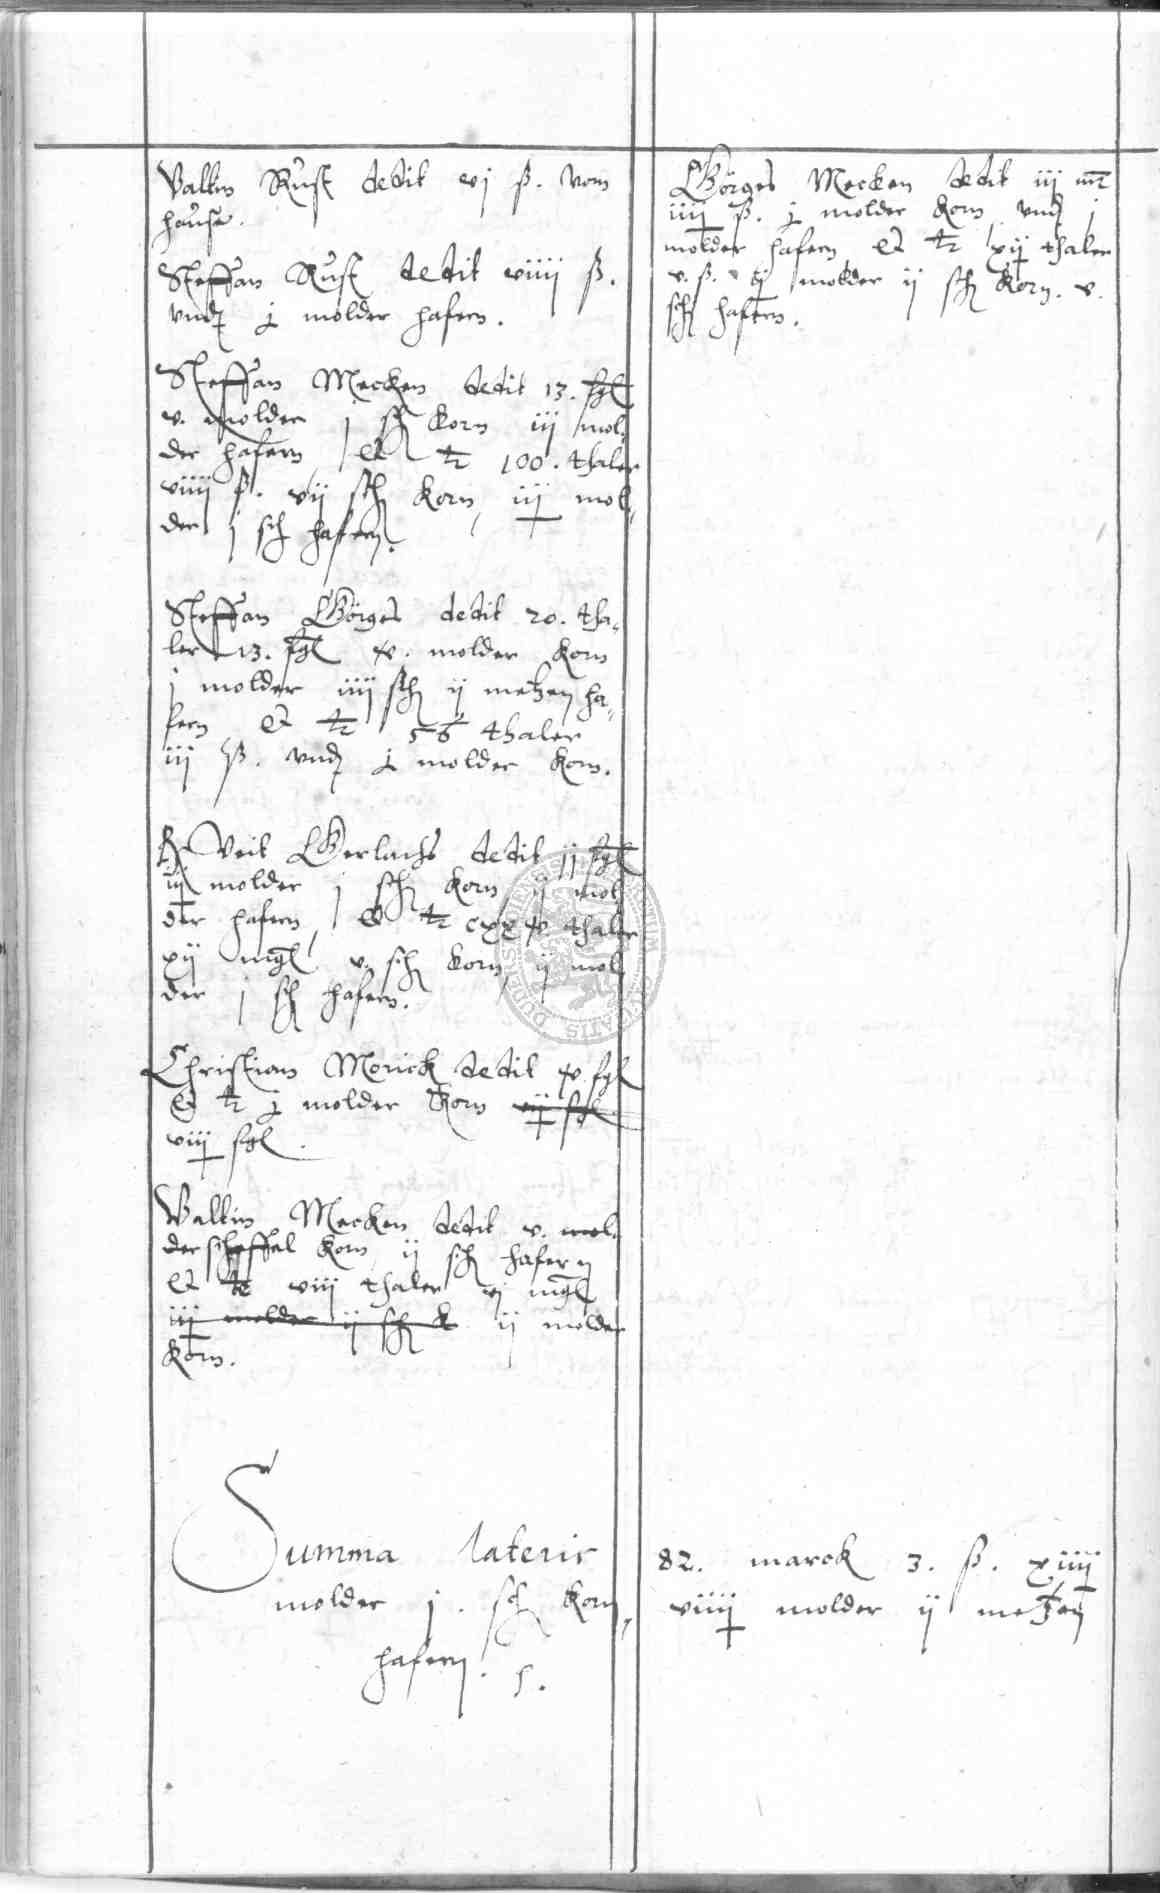 Valtin Rust dedit vj ß. vom
hause.
Steffan Rust dedit viiij ß.
vnd j molder hafern.
Steffan Mecken dedit 13. sgl
v. molder j sch korn iij mol-
der hafern et tz 100. thaler
viiij ß. vij sch korn, iij mol-
der j sch hafern.
Steffan Görges dedit 20. tha-
ler 13. sgl xv. molder korn
j molder iiij sch ij metzen ha-
fern et tz 56 thaler
iij ß. vnd j molder korn.
Veit Gerlachs dedit ij sgl
iij molder j sch korn ij mol-
der hafern, et tz cxxxv thaler
xij mgl v. sch korn ij mol-
der j sch hafern.
Christian Monick dedit xv sgl
et tz j molder korn viij sgl
viiij sgl.
Valtin Mecken dedit v. mol-
der scheffel korn ij sch hafern
et tz viij thaler vj mgl
iij molder ij sch k ij molder
korn.
Görges Mecken dedit iij mr
iiij ß. j molder korn vnd j
molder hafern et tz xij thaler
v. ß. ij molder ij sch korn. v.
sch hafern.
Summa lateris 82. marck 3. ß. xiiij
molder j. sch korn, viiij molder ij metzen
hafern.